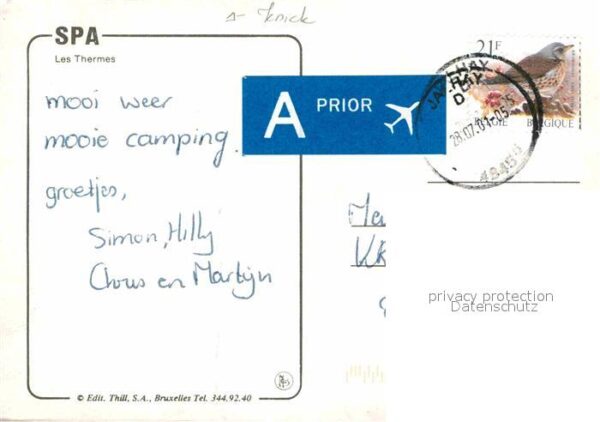 1- Knick
SPA
Les Thermes
21F
JALHAY
A PRIOR
BELGIQUE
28.07.01-05
48456
mooi weer
mooie camping.
groetjes,
Simon, Hilly
Chris en Martijn
privacy protection
Datenschutz
© Edit. Thill, S.A., Bruxelles Tel. 344.92.40